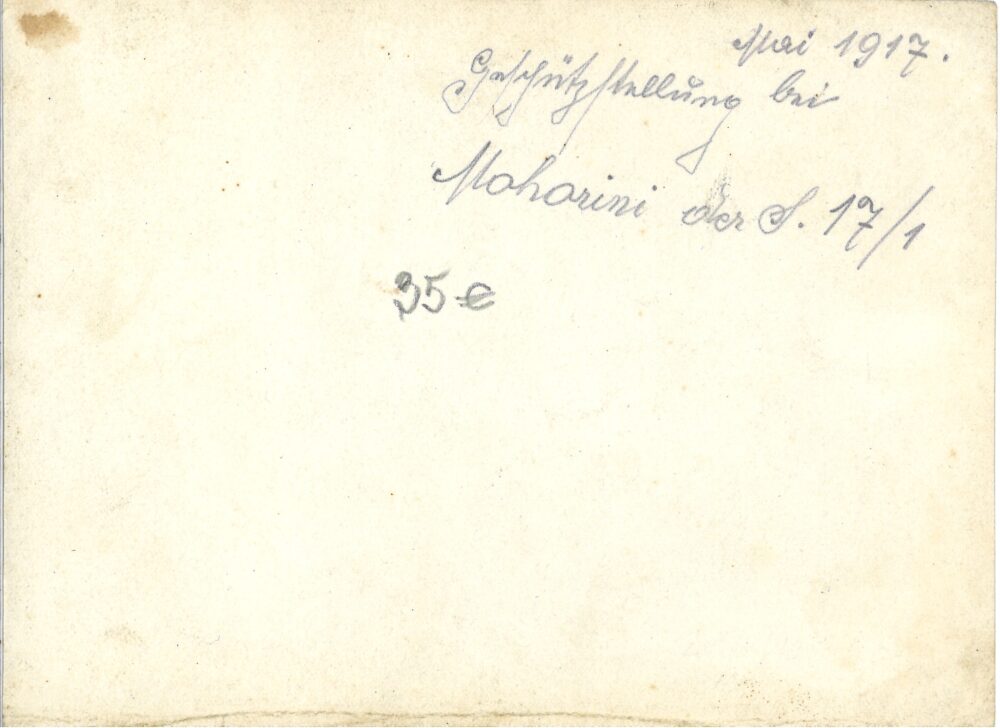 Mai 1917.
Geschützstellung bei
Moharini der S. 17/1
35 €